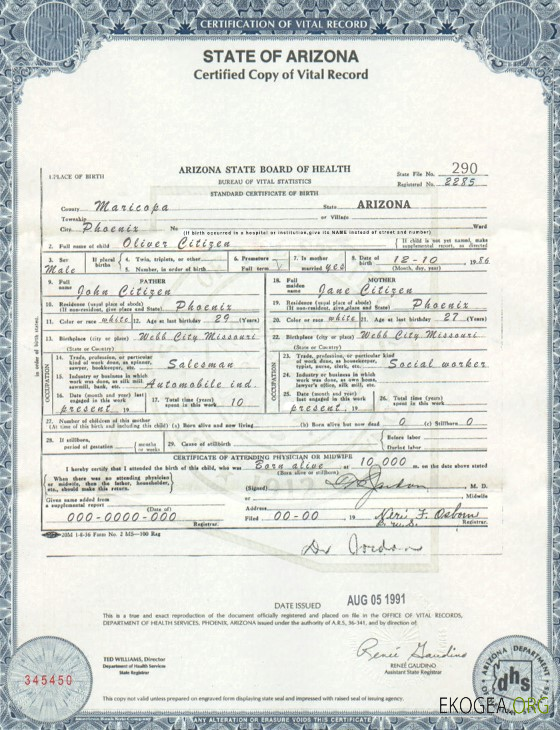 CERTIFICATION OF VITAL RECORD
STATE OF ARIZONA
Certified Copy of Vital Record
ARIZONA STATE BOARD OF HEALTH
BUREAU OF VITAL STATISTICS
STANDARD CERTIFICATE OF BIRTH
1. PLACE OF BIRTH
State File No. 290
Registered No. 2285
County Maricopa State ARIZONA
Township or Village
City Phoenix No Ward
(If birth occurred in a hospital or institution, give its NAME instead of street and number)
2. Full name of child Oliver Citizen
If child is not yet named, make supplemental report, as directed
3. Sex Male
If plural births
4. Twin, triplets, or other
5. Number, in order of birth
6. Premature
Full term
7. Is mother married yes
8. Date of birth 12-10, 1986
(Month, day, year)
FATHER
9. Full name John Citizen
10. Residence (usual place of abode) (If non-resident, give place and State) Phoenix
11. Color or race white 12. Age at last birthday 29 (Years)
13. Birthplace (city or place) Webb City Missouri
(State or Country)
OCCUPATION
14. Trade, profession, or particular kind of work done, as spinner, sawyer, bookkeeper, etc. Salesman
15. Industry or business in which work was done, as silk mill, sawmill, bank, etc. Automobile ind.
16. Date (month and year) last engaged in this work present, 19
17. Total time (years) spent in this work 10
MOTHER
18. Full maiden name Jane Citizen
19. Residence (usual place of abode) (If non-resident, give place and State) Phoenix
20. Color or race white 21. Age at last birthday 27 (Years)
22. Birthplace (city or place) Webb City Missouri
(State or Country)
OCCUPATION
23. Trade, profession, or particular kind of work done, as housekeeper, typist, nurse, clerk, etc. Social worker
24. Industry or business in which work was done, as own home, lawyer's office, silk mill, etc.
25. Date (month and year) last engaged in this work present, 19
26. Total time (years) spent in this work
27. Number of children of this mother
(At time of this birth and including this child) (a) Born alive and now living (b) Born alive but now dead 0 (c) Stillborn 0
28. If stillborn, period of gestation months or weeks
29. Cause of stillbirth
Before labor
During labor
CERTIFICATE OF ATTENDING PHYSICIAN OR MIDWIFE
I hereby certify that I attended the birth of this child, who was Born alive at 10,000 m. on the date above stated
(Born alive or stillborn)
When there was no attending physician or midwife, then the father, householder, etc., should make this return.
(Signed) M. D.
or Midwife
Given name added from a supplemental report
(Date of)
000-0000-000
Registrar.
Address
Filed 00-00, 19 F. Osborn
Registrar.
DATE ISSUED AUG 05 1991
This is a true and exact reproduction of the document officially registered and placed on file in the OFFICE OF VITAL RECORDS,
DEPARTMENT OF HEALTH SERVICES, PHOENIX, ARIZONA issued under the authority of A.R.S. 36-341, and by direction of:
TED WILLIAMS, Director
Department of Health Services
State Registrar
Reneé Gaudino
RENEÉ GAUDINO
Assistant State Registrar
345450
ARIZONA DEPARTMENT
dhs
This copy not valid unless prepared on engraved form displaying state seal and impressed with raised seal of issuing agency.
ANY ALTERATION OR ERASURE VOIDS THIS CERTIFICATE
EKOGEA.ORG